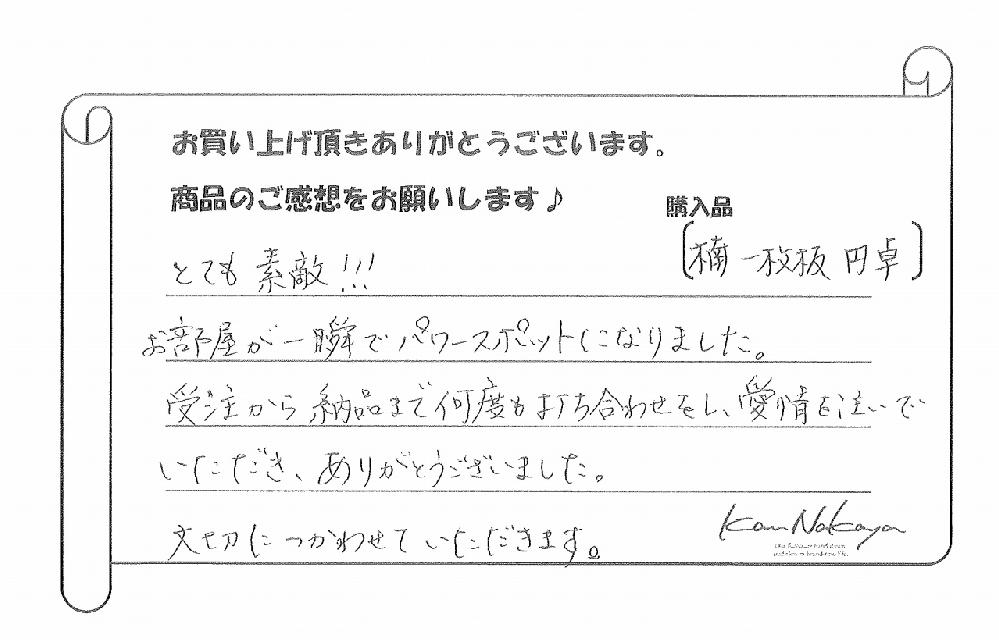 お買い上げ頂きありがとうございます。
商品のご感想をお願いします♪
購入品
[楠 一枚板 円卓]
とても 素敵!!!
お部屋が一瞬でパワースポットになりました。
受注から納品まで何度も打ち合わせをし、愛情を注いで
いただき、ありがとうございました。
大切につかわせていただきます。
Kan Nakaya